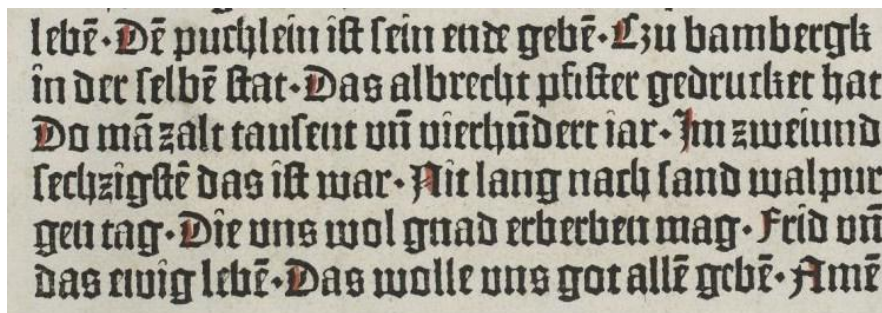 lebē·Dē puchlein ist sein ende gebē·Czu bambergk
in der selbē stat·Das albrecht pfister gedrucket hat
Do mā zalt tausent uñ vierhūdert iar·Im zweiund
sechzigstē das ist war·Nit lang nach sand walpur
gen tag·Die uns wol gnad erberben mag·Frid uñ
das ewig lebē·Das wolle uns got allē gebē·Amē